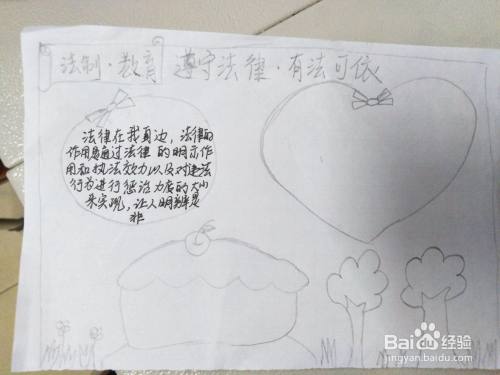 法制·教育 遵守法律·有法可依
法律在我身边，法律的
作用是通过法律的明示作
用和执法效力以及对违法
行为进行惩治力度的大小
来实现，让人明辨是
非
Baidu经验
jingyan.baidu.com